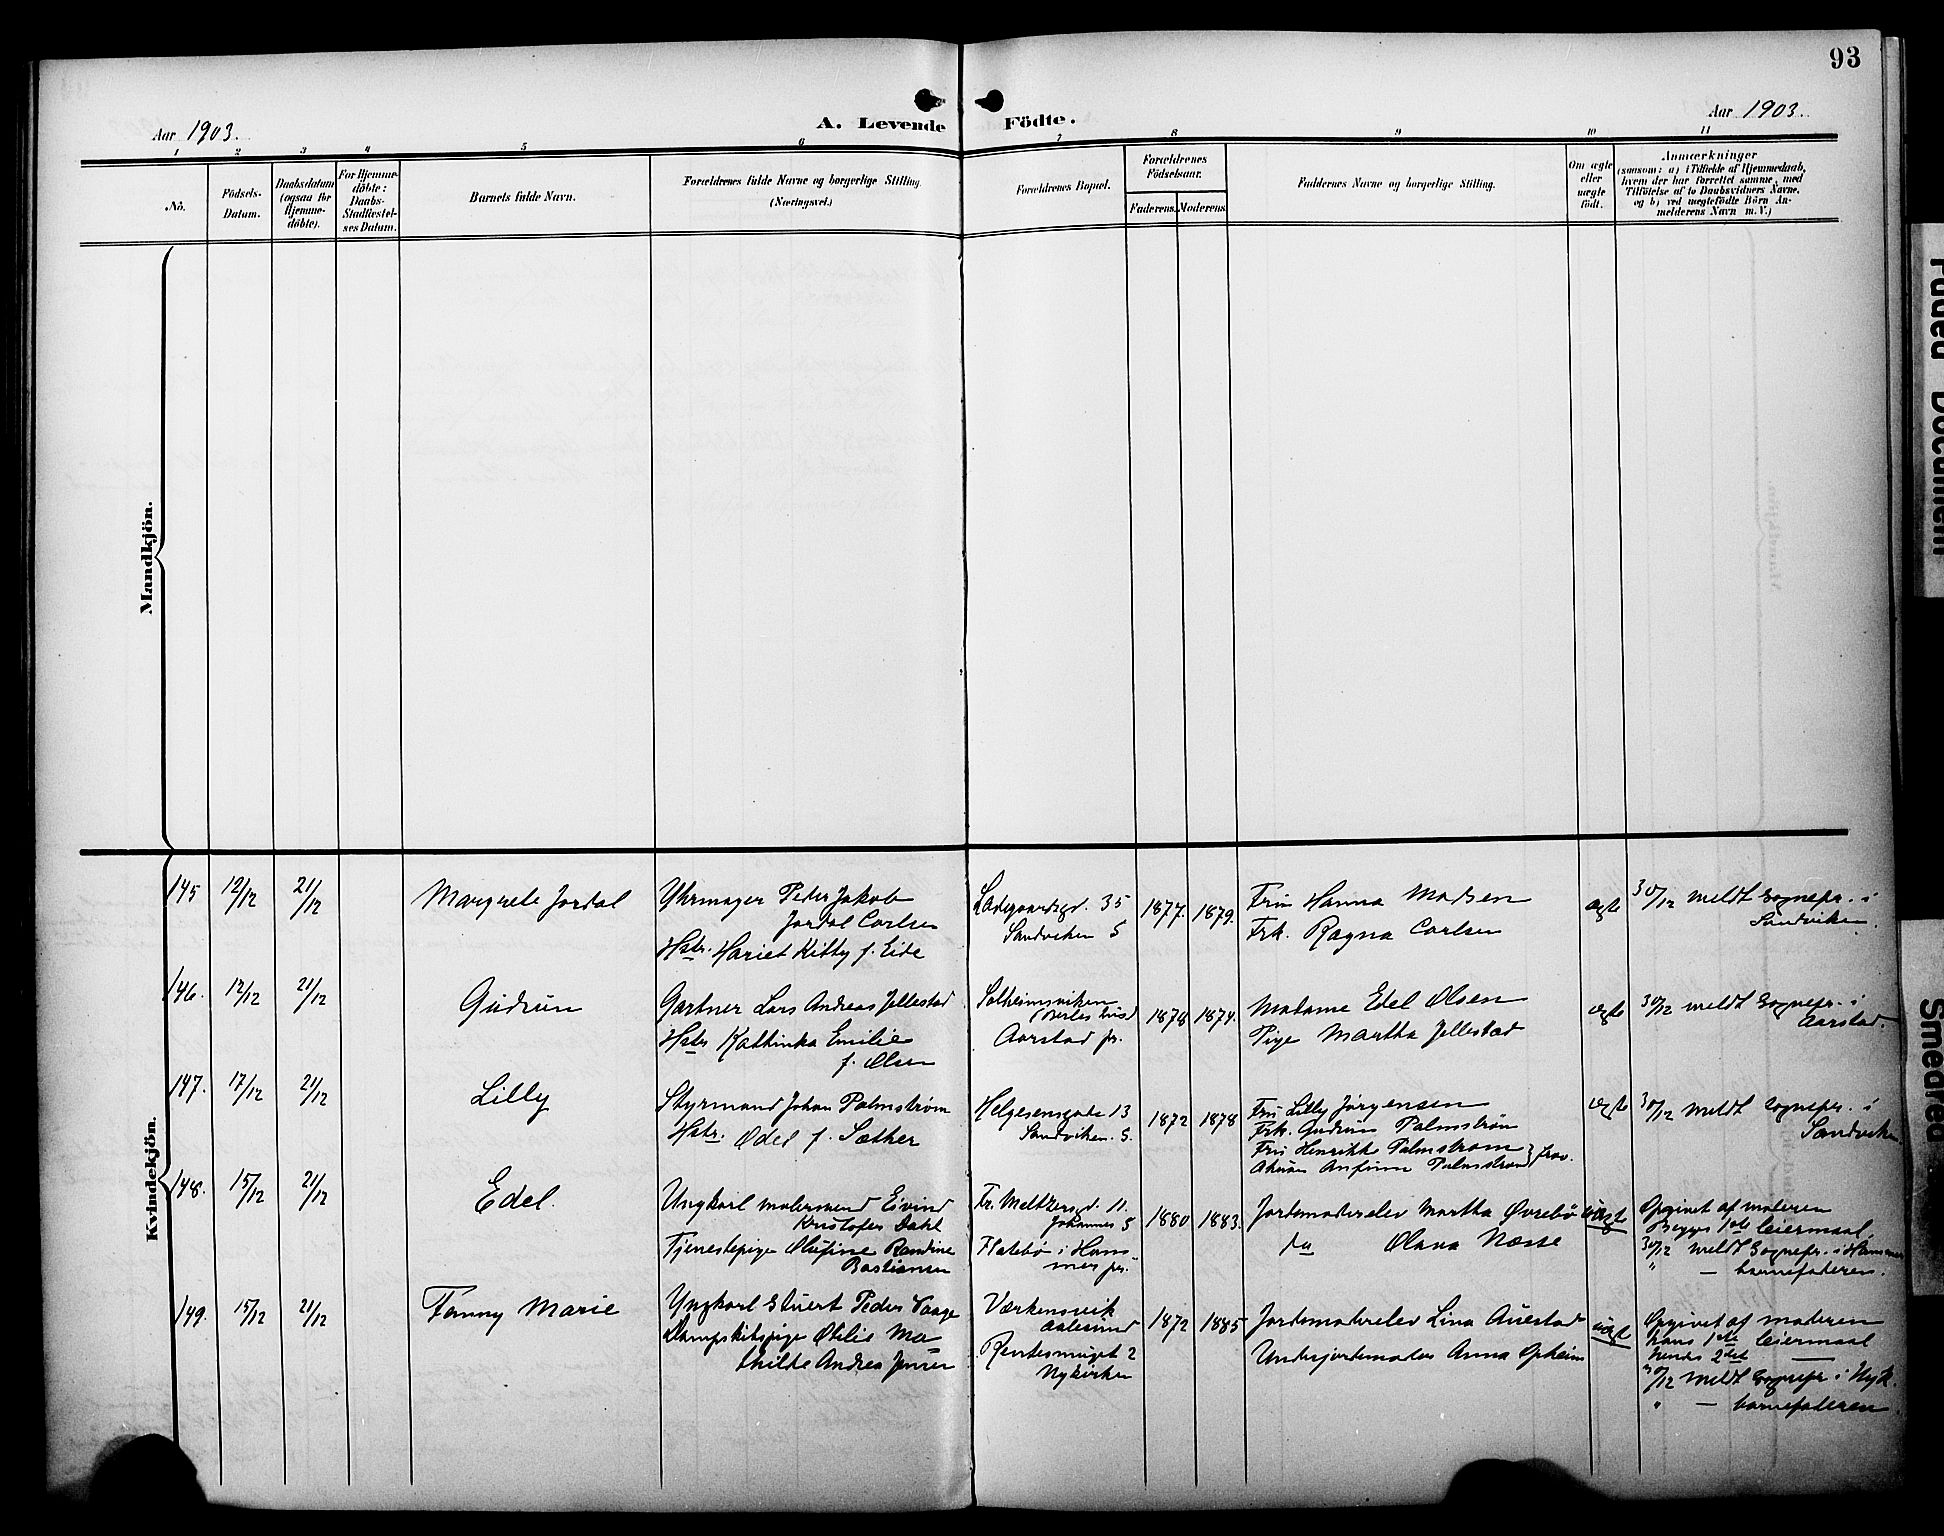 93
Aar 1903.
A. Levende Födte.
Aar 1903.
1 2 3 4 5 6 7 8 9 10 11
No.
Födsels-
Datum.
Daabsdatum
(ogsaa for
Hjemme-
döbte).
For Hjemme-
döbte:
Daabs-
Stadfæstel-
ses Datum.
Barnets fulde Navn.
Forældrenes fulde Navne og borgerlige Stilling.
(Næringsvei.)
Forældrenes Bopæl.
Forældrenes
Födselsaar.
Faderens. Moderens.
Faddernes Navne og borgerlige Stilling.
Om ægte
eller
uægte
födt.
Anmærkninger
(saasom: a) i Tilfælde af Hjemmedaab,
hvem der har forrettet samme, med
Tilföielse af to Daabsvidners Navne,
og b) ved uægtefödte Börn An-
melderens Navn m. V.)
Mandkjön.
Kvindekjön.
145 12/12 21/12
Margrete Jordal
Uhrmager Peder Jakob
Jordal Carlsen
Hstr. Hariet Kitty f. Eide
Ladegaardsgd. 35
Sandviken S
1877. 1879.
Fru Hanna Madsen
Frk. Ragna Carlsen
ægte
30/12 meldt Sognepr. i
Sandviken.
146. 12/12 21/12
Gudrun
Gartner Lars Andreas Jellestad
Hstr Kathinka Emilie
f. Olsen
Solheimsviken
Aarstad pr.
1878 1874.
Madame Edel Olsen
Pige Martha Jellestad
ægte
30/12 meldt Sognepr. i
Aarstad.
147. 17/12 21/12
Lilly
Styrmand Johan Palmstrøm
Hstr. Odel f. Sæther
Helgesensgade 13
Sandviken. S.
1872 1878
Fru Lilly Jørgensen
Frk. Gudrun Palmstrøm
Fru Henrikke Palmstrøm
Anfinn Palmstrøm } frav.
ægte
30/12 meldt Sognepr. i
Sandviken
148. 15/12 21/12
Edel.
Ungkarl malersvend Eivind
Kristofer Dahl
Tjenestepige Olufine Randine
Bastiansen
Fr. Meltzersgd. 11.
Johannes S
Flatebø i Ham-
mer pr.
1880 1883.
Jordemoderelev Martha Øvrebø
do Olava Næsse
uægte
Opgivet af moderen
Begges 1ste leiermaal.
30/12 meldt Sognepr. i Hammer
" — barnefaderen.
149. 15/12 21/12
Fanny Marie
Ungkarl Stuert Peder Vaage
Dampskibspige Otilie Ma-
thilde Andrea Jensen
Værkensvik
Aalesund
Rentesmuget 2
Nykirken
1872 1885
Jordemoderelev Lina Auestad
Underjordemoder Anna Opheim
uægt
Opgivet af moderen
hans 1ste leiermaal
hendes 2det —
30/12 meldt Sognepr. i Nyk.
" — barnefaderen.
Faded Document
Smeared